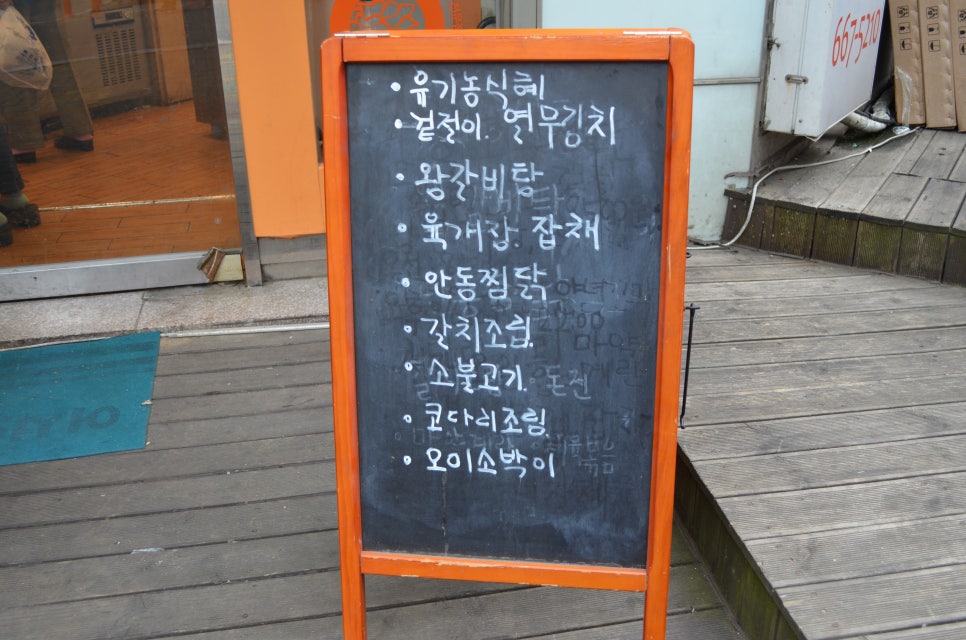 667-5210
·유기농식혜
·겉절이. 연무김치
·왕갈비탕
·육개장. 잡채
·안동찜닭
·갈치조림.
·소불고기.
·코다리조림.
·오이소박이